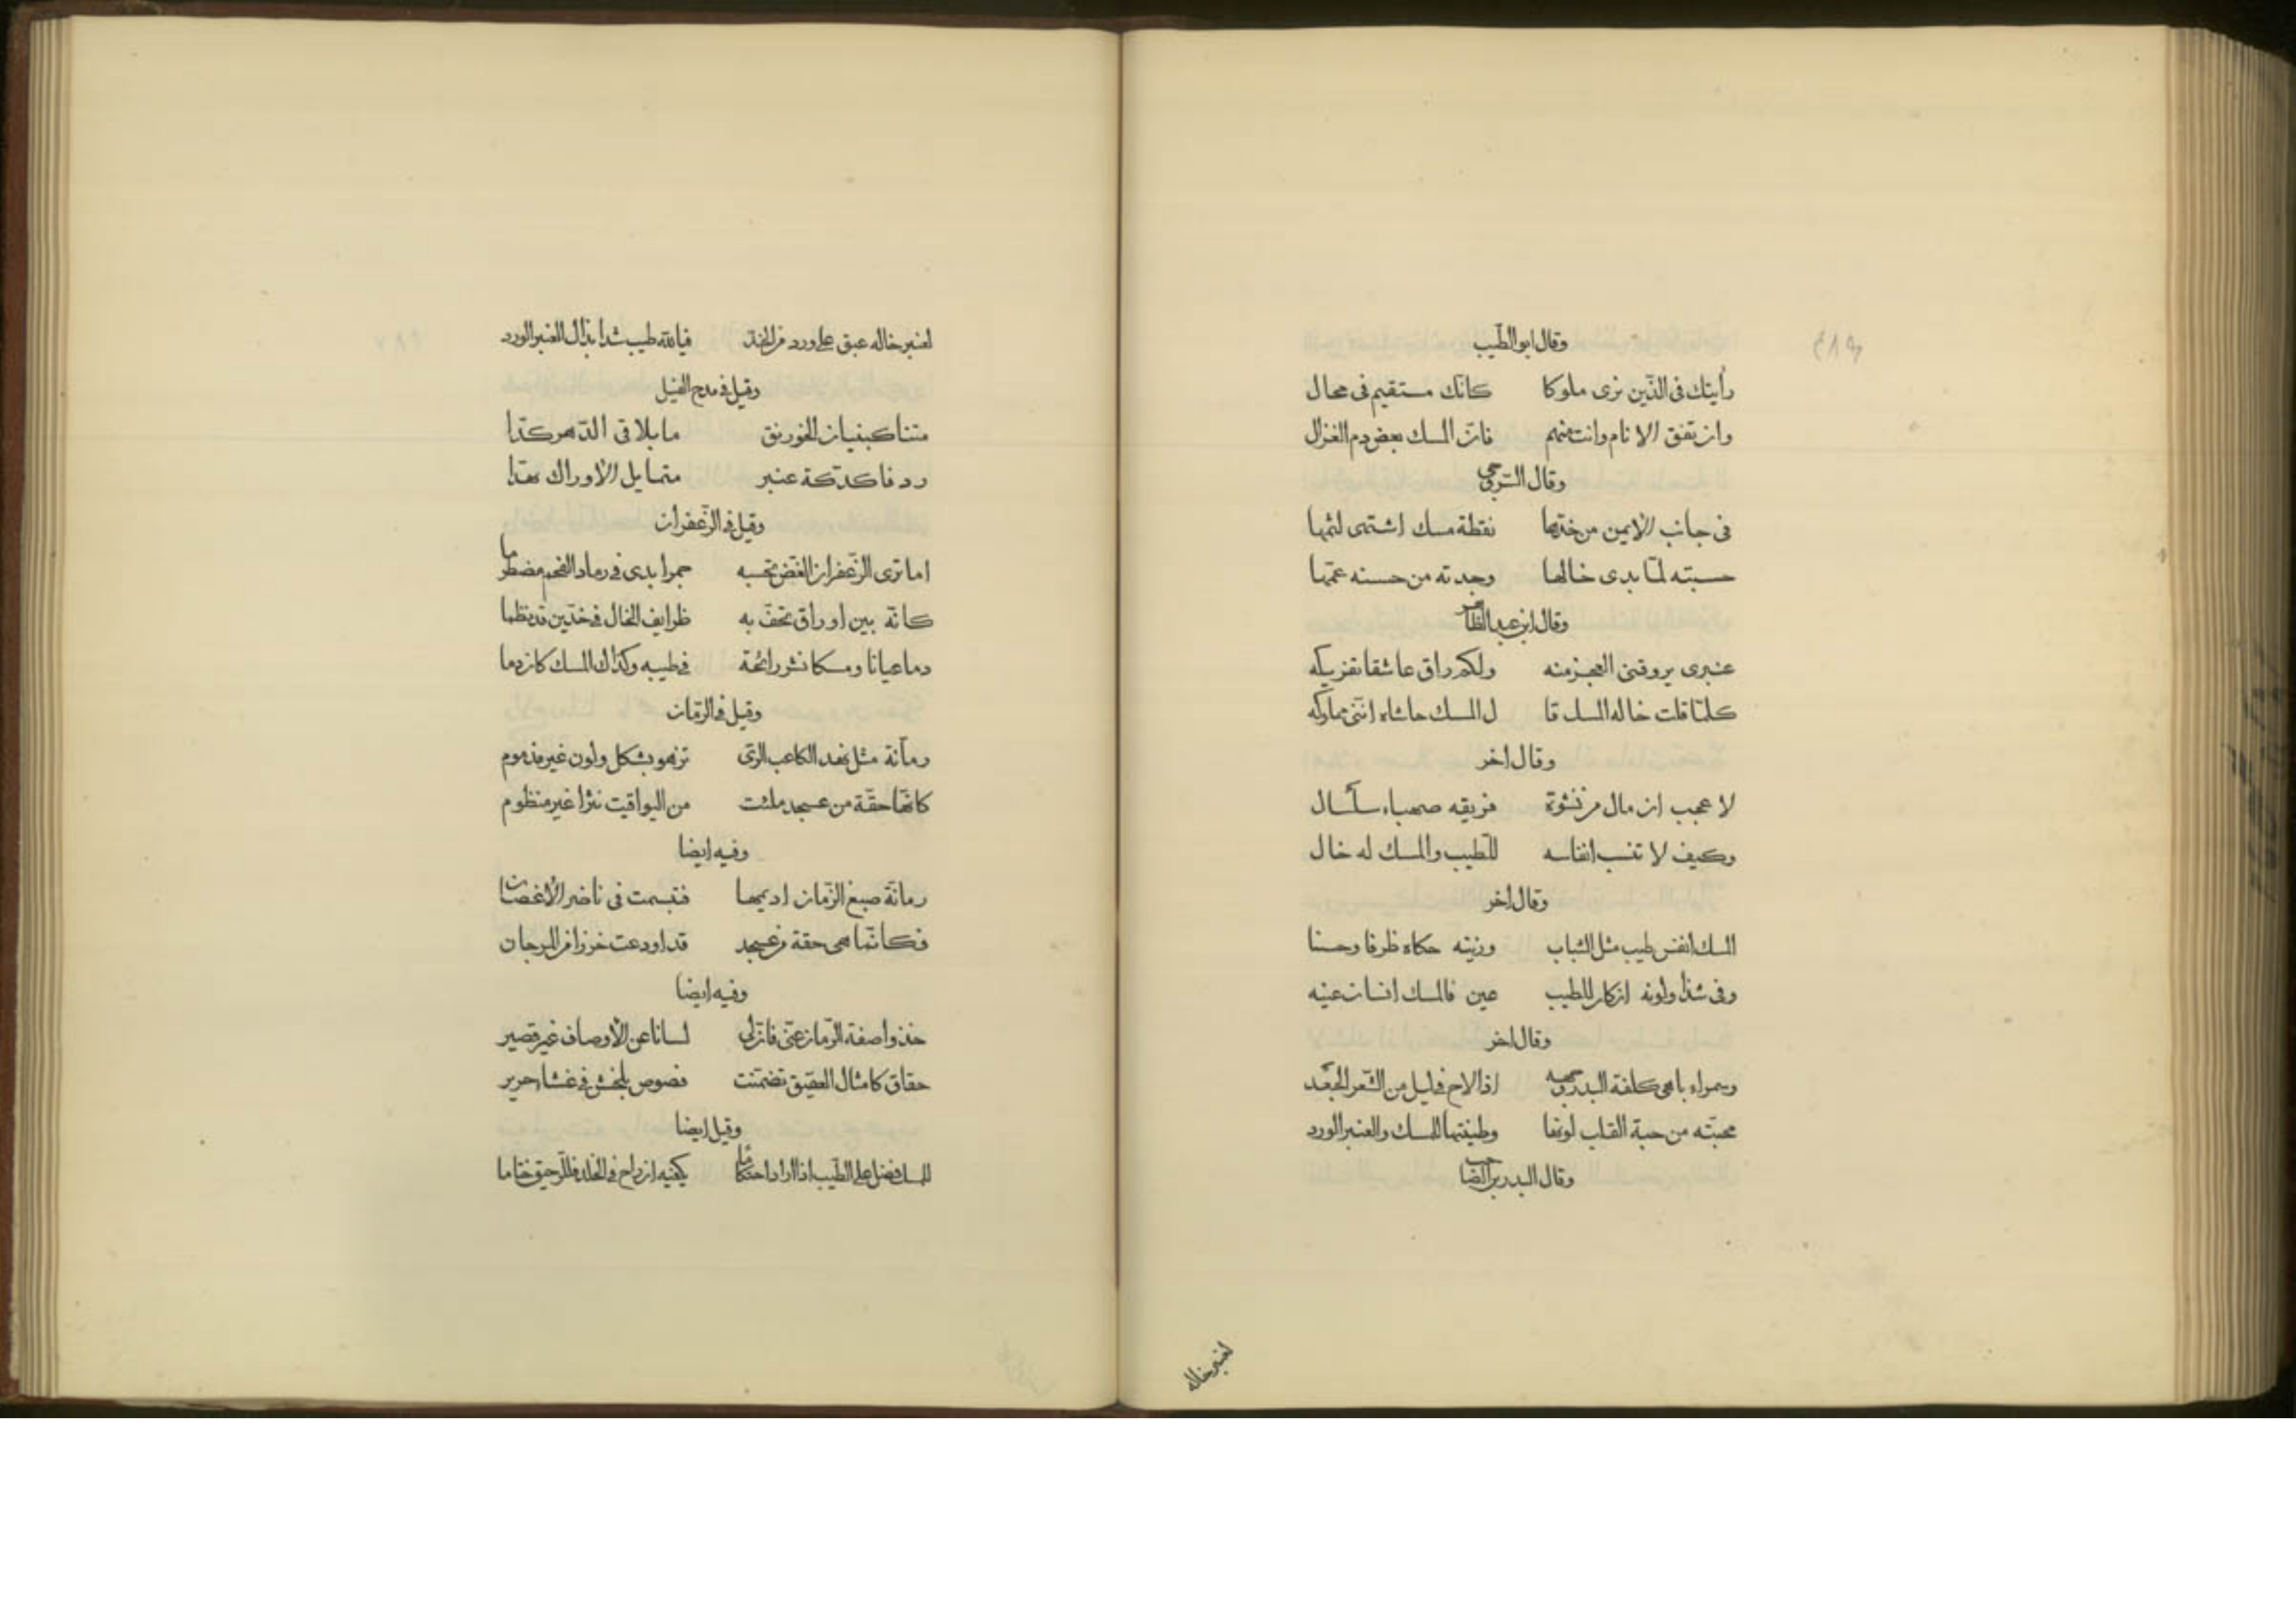 وقال ابو الطّيب
رأيتك فى الذّين نرى ملوكا كانّك مستقيم فى محال
وان تفق الانام وانت منهم فانّ المسك بعض دم الغزال
وقال
فى جانب الايمن من خدّها نقطة مسك اشتهى لثمها
حسبته لمّا بدى خالها وجدته من حسنه عمّها
وقال ابن عبد الظاهر
عنبرى يروقنى العجز منه ولكم راق عاشقا
كلمّا قلت خاله المسك قا ل المسك حاشاه انّنى مملوكه
وقال اخر
لا عجب ان مال من نشوة فريقه صهباء سلسال
وكيف لا تنسب انفاسه للطّيب والمسك له خال
وقال اخر
المسك انفس طيب مثل الشباب وزينه حكاه ظرفا وحسنا
وفى شذا ولونه ان كان للطيب عين فالمسك انسان عينه
وقال اخر
وسمراء باهى كلفة البدر اذا لاح فى ليل من الشّعر الجعّد
محبّته من حبة القلب لونها وطينتها للمسك والعنبر الورد
وقال البدر بن الصاحب
لعنبر خاله
لعنبر خاله عبق على ورد من الخدّ فيا لله طيب شذا بذاك العنبر الورد
وقيل فى مدح الفيل
متنا كبنيان الخورنق ما يلاقى الدّهر كدّا
ردفا كدكّة عنبر متمايل الاوراك نهدا
وقيل فى الزّعفران
اما ترى الزّعفران الغّض تحسبه جمرا بدى فى رماد الفحم مضطرما
كانّه بين اوراق تحفّ به طرايف الخال فى خدّين قد نظما
دما عيانا ومسكا نشر رائحة فى طيبه وكذاك المسك كان دما
وقيل فى الرّمان
رمّانة مثل نهد الكاعب الرّى تزهو بشكل ولون غير مذموم
كانّها حقّة من عسجد ملئت من اليواقيت نثرا غير منظوم
وفيه ايضا
رمانّة صبغ الزّمان اديمها فتبسمت فى ناضر الاغصان
فكانّما هى حقة من عسجد قد اودعت خرزا من المرجان
وفيه ايضا
خذوا صفة الرّمان عنّى فانّ لى لسانا عن الاوصاف غير قصير
حقاق كامثال العقيق تضمّنت فصوص بلخش فى غشاء حرير
وقيل ايضا
للمسك فضل على الطّيب اذا ارادا احتكاما يكفيه ان راح فى الخلد للرّحيق ختاما